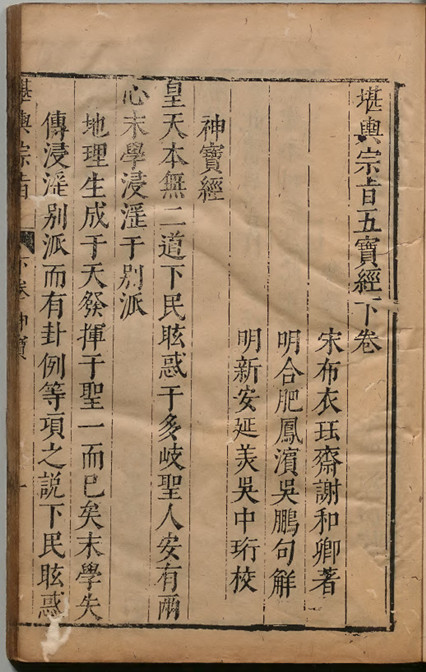 堪輿宗旨五寶經下卷
宋布衣玨齋謝和卿著
明合肥鳳濱吳鵬句解
明新安延羙吳中珩校
神寶經
皇天本無二道下民眩惑于多岐聖人安有兩
心末學浸滛于别派
地理生成于天發揮于聖一而已矣末學失
傳浸滛别派而有卦例等項之説下民眩惑
堪輿宗旨
下卷神寶
一